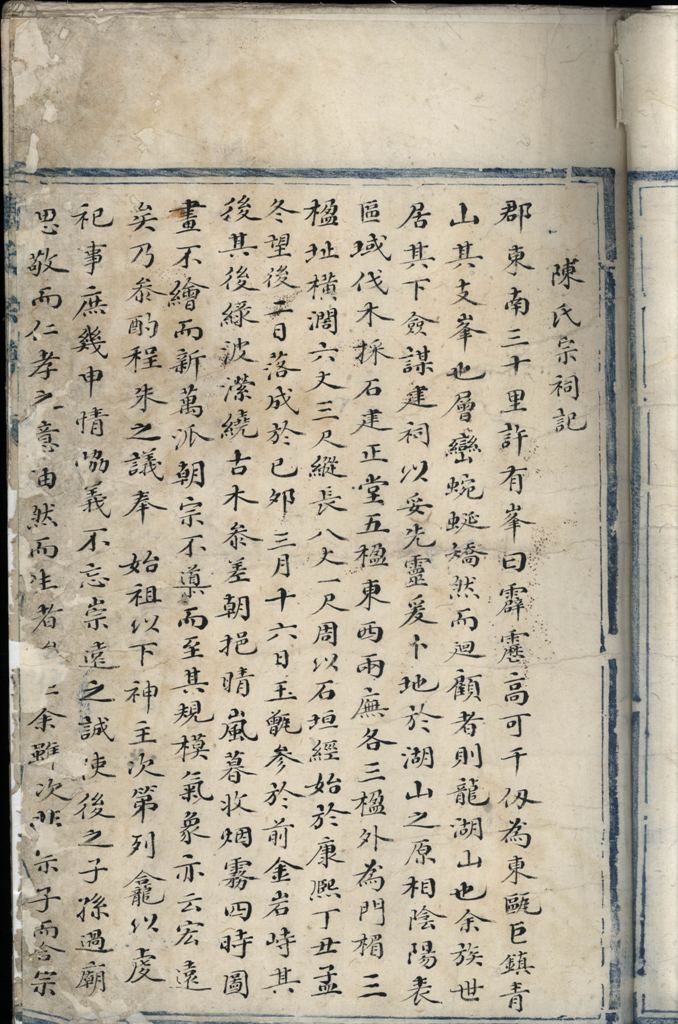 陳氏宗祠記
郡東南三十里許有峯曰霹靂高可千仭為東甌巨鎮青
山其支峯也層巒蜿蜒矯然而迴顧者則龍湖山也余族世
居其下僉謀建祠以妥先靈爰卜地於湖山之原相陰陽表
區域伐木採石建正堂五楹東西兩廡各三楹外為門楣三
楹址橫濶六丈三尺縱長八丈一尺周以石垣經始於康熙丁丑孟
冬望後二日落成於己卯三月十六日玉甑參於前金岩峙其
後其後綠波瀠繞古木參差朝挹晴嵐暮收烟霧四時圖
畫不繪而新萬派朝宗不導而至其規模氣象亦云宏遠
矣乃叅酌程朱之議奉 始祖以下神主次第列龕以虔
祀事庶幾申情恊義不忘崇遠之誠使後之子孫過廟
思敬而仁孝之意油然而生者 余雖次非宗子而合宗